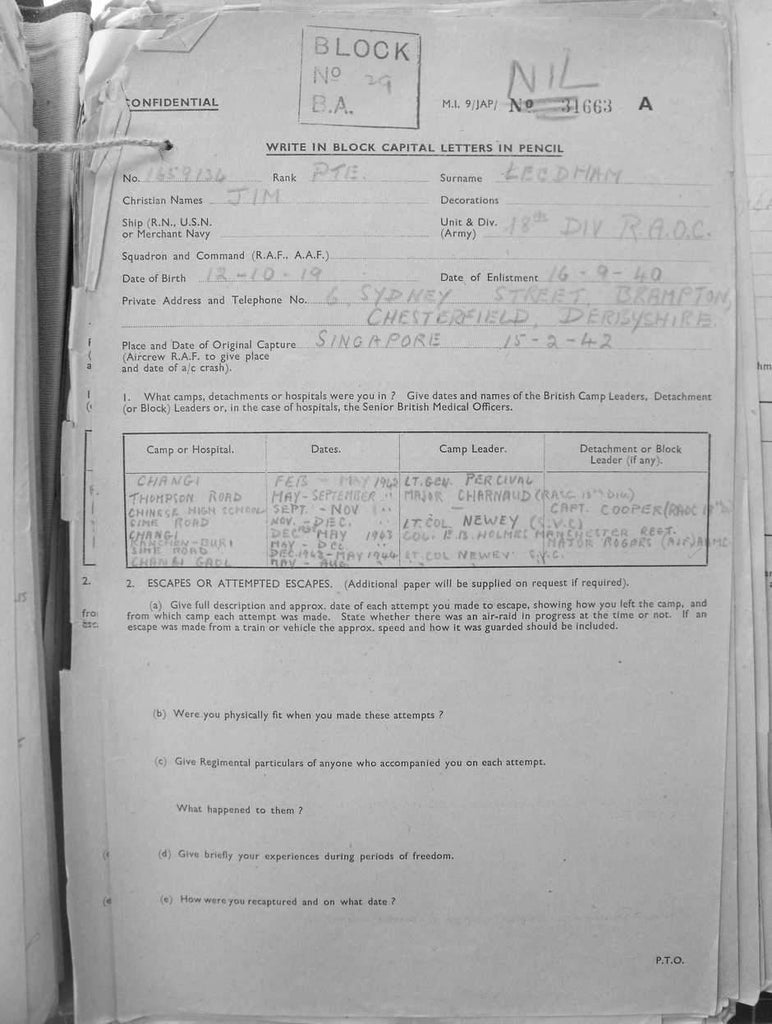 BLOCK
No 29
B.A.
NIL
CONFIDENTIAL
M.I. 9/JAP/ No 31663 A
WRITE IN BLOCK CAPITAL LETTERS IN PENCIL
No. Rank PTE. Surname LEEDHAM
Christian Names JIM Decorations
Ship (R.N., U.S.N. Unit & Div. 18th DIV R.A.O.C.
or Merchant Navy (Army)
Squadron and Command (R.A.F., A.A.F.)
Date of Birth 12-10-19 Date of Enlistment 16-9-40
Private Address and Telephone No. 6, SYDNEY STREET, BRAMPTON,
CHESTERFIELD, DERBYSHIRE.
Place and Date of Original Capture SINGAPORE 15-2-42
(Aircrew R.A.F. to give place
and date of a/c crash).
1. What camps, detachments or hospitals were you in ? Give dates and names of the British Camp Leaders, Detachment
(or Block) Leaders or, in the case of hospitals, the Senior British Medical Officers.
Camp or Hospital. Dates. Camp Leader. Detachment or Block
Leader (if any).
CHANGI FEB - MAY 1942 LT. GEN. PERCIVAL
THOMPSON ROAD MAY-SEPTEMBER " MAJOR CHARNAUD (RASC 18th DIV)
CHINESE HIGH SCHOOL SEPT. - NOV — CAPT. COOPER (RAOC
SIME ROAD NOV. - DEC. LT. COL. NEWEY (S.V.C)
CHANGI DEC - MAY 1943 COL. E.B. HOLMES MANCHESTER REGT.
KANCHEN-BURI MAY - DEC MAJOR ROGERS (AIF)
SIME ROAD DEC. 1943-MAY 1944 LT. COL NEWEY S.V.C.
CHANGI GAOL MAY - AUG.
2. 2. ESCAPES OR ATTEMPTED ESCAPES. (Additional paper will be supplied on request if required).
(a) Give full description and approx. date of each attempt you made to escape, showing how you left the camp, and
from which camp each attempt was made. State whether there was an air-raid in progress at the time or not. If an
escape was made from a train or vehicle the approx. speed and how it was guarded should be included.
(b) Were you physically fit when you made these attempts ?
(c) Give Regimental particulars of anyone who accompanied you on each attempt.
What happened to them ?
(d) Give briefly your experiences during periods of freedom.
(e) How were you recaptured and on what date ?
P.T.O.